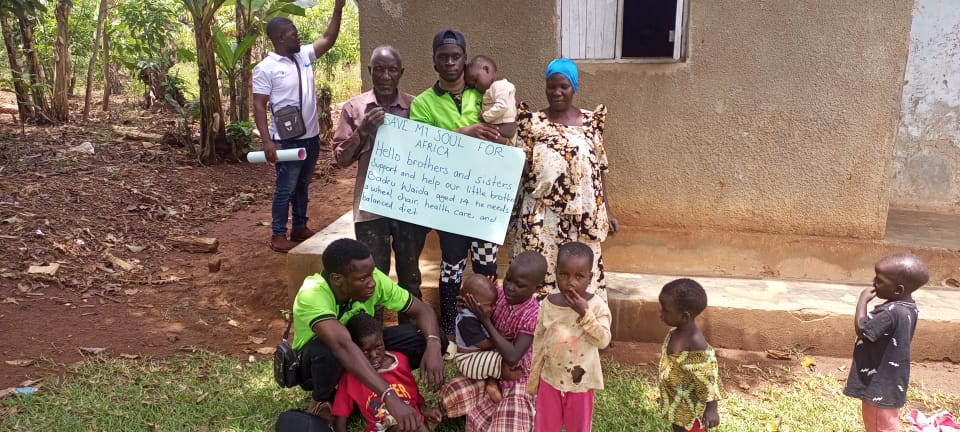 SAVE MY SOUL FOR
AFRICA
Hello brothers and sisters
Support and help our little brothe
Badru Waida aged 14. he needs
a wheel chair, health care, and
balanced diet